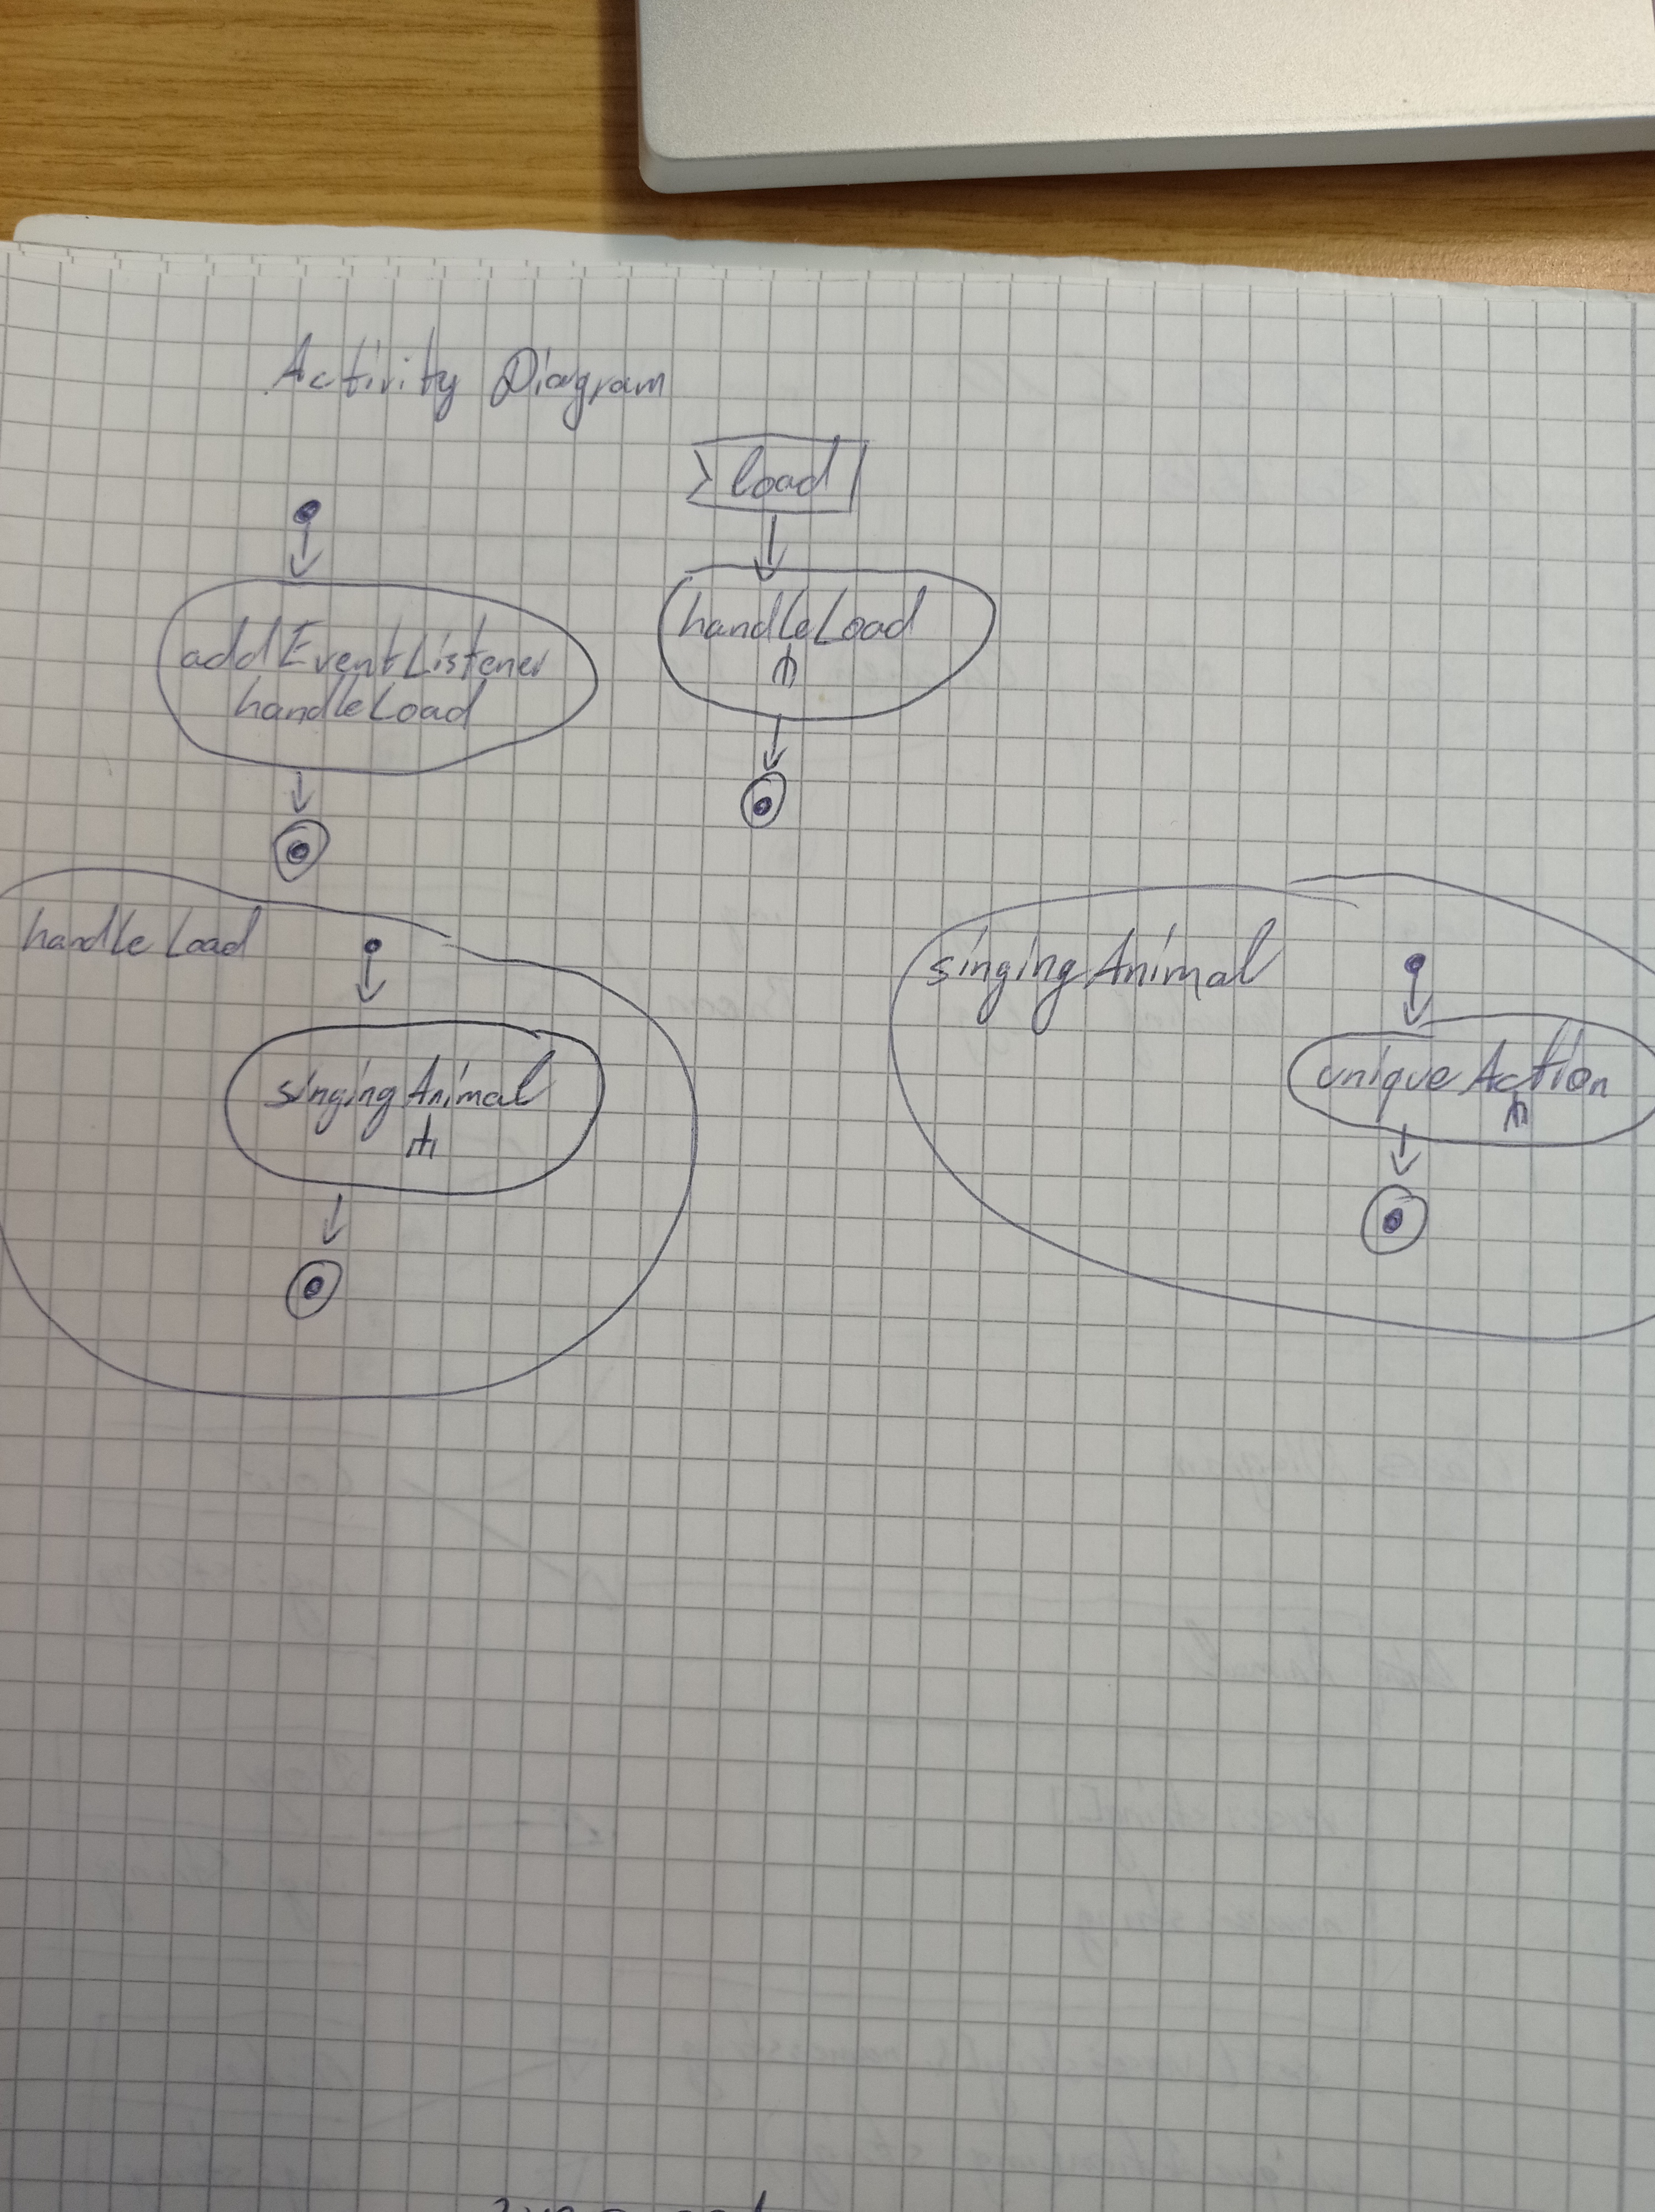 Activity Diagram
load
addEventListener
handleLoad
handleLoad
handleLoad
singingAnimal
singingAnimal
uniqueAction